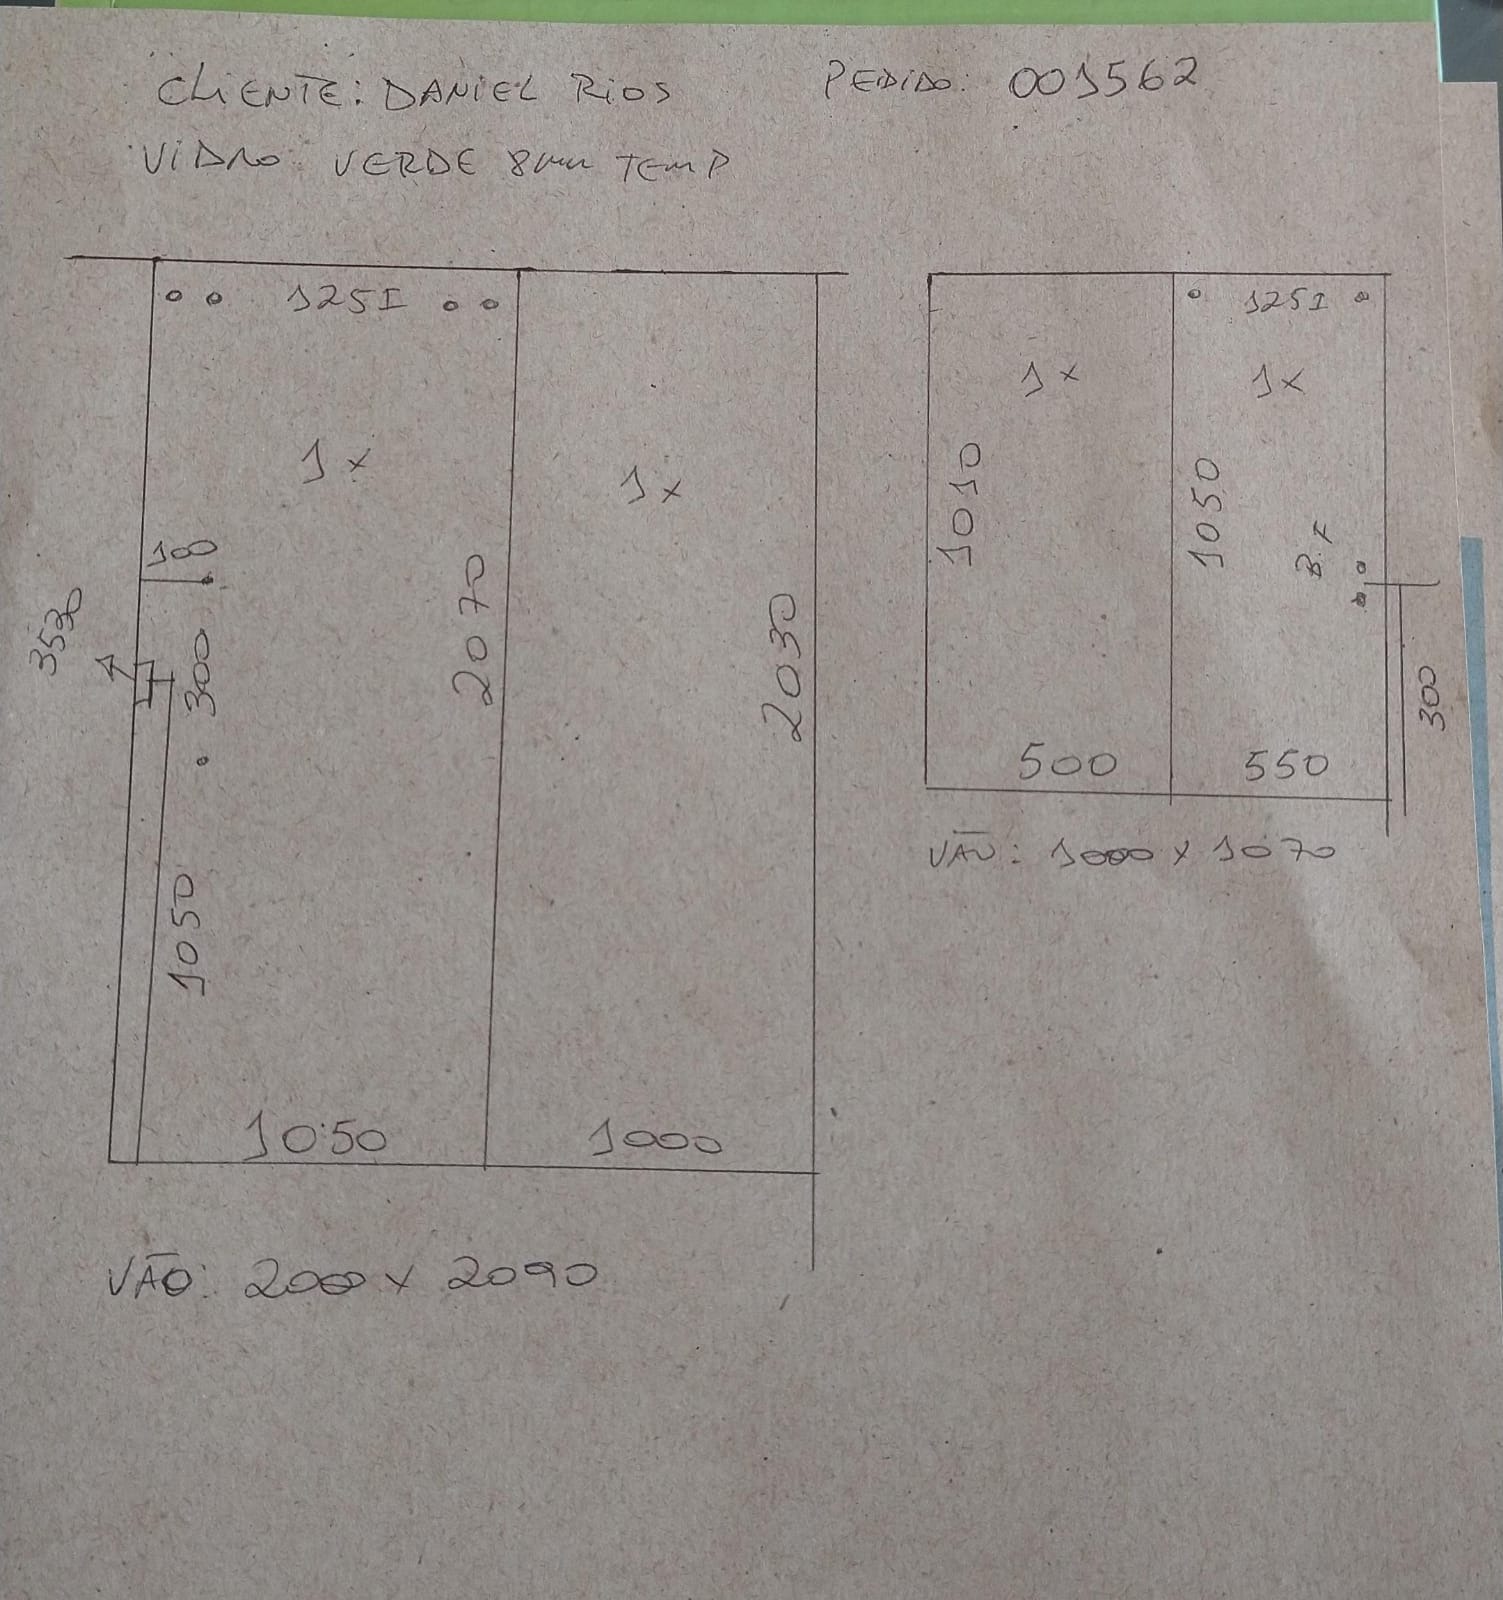 CLIENTE: DANIEL RIOS PEDIDO: 001562
VIDRO VERDE 8mm TEMP
125I
1x
1x
100
3530
300
2070
2030
1050
1050
1000
VÃO: 2000 x 2090
125I
1x
1x
1010
1050
B.F
300
500
550
VÃO: 1000 x 1070